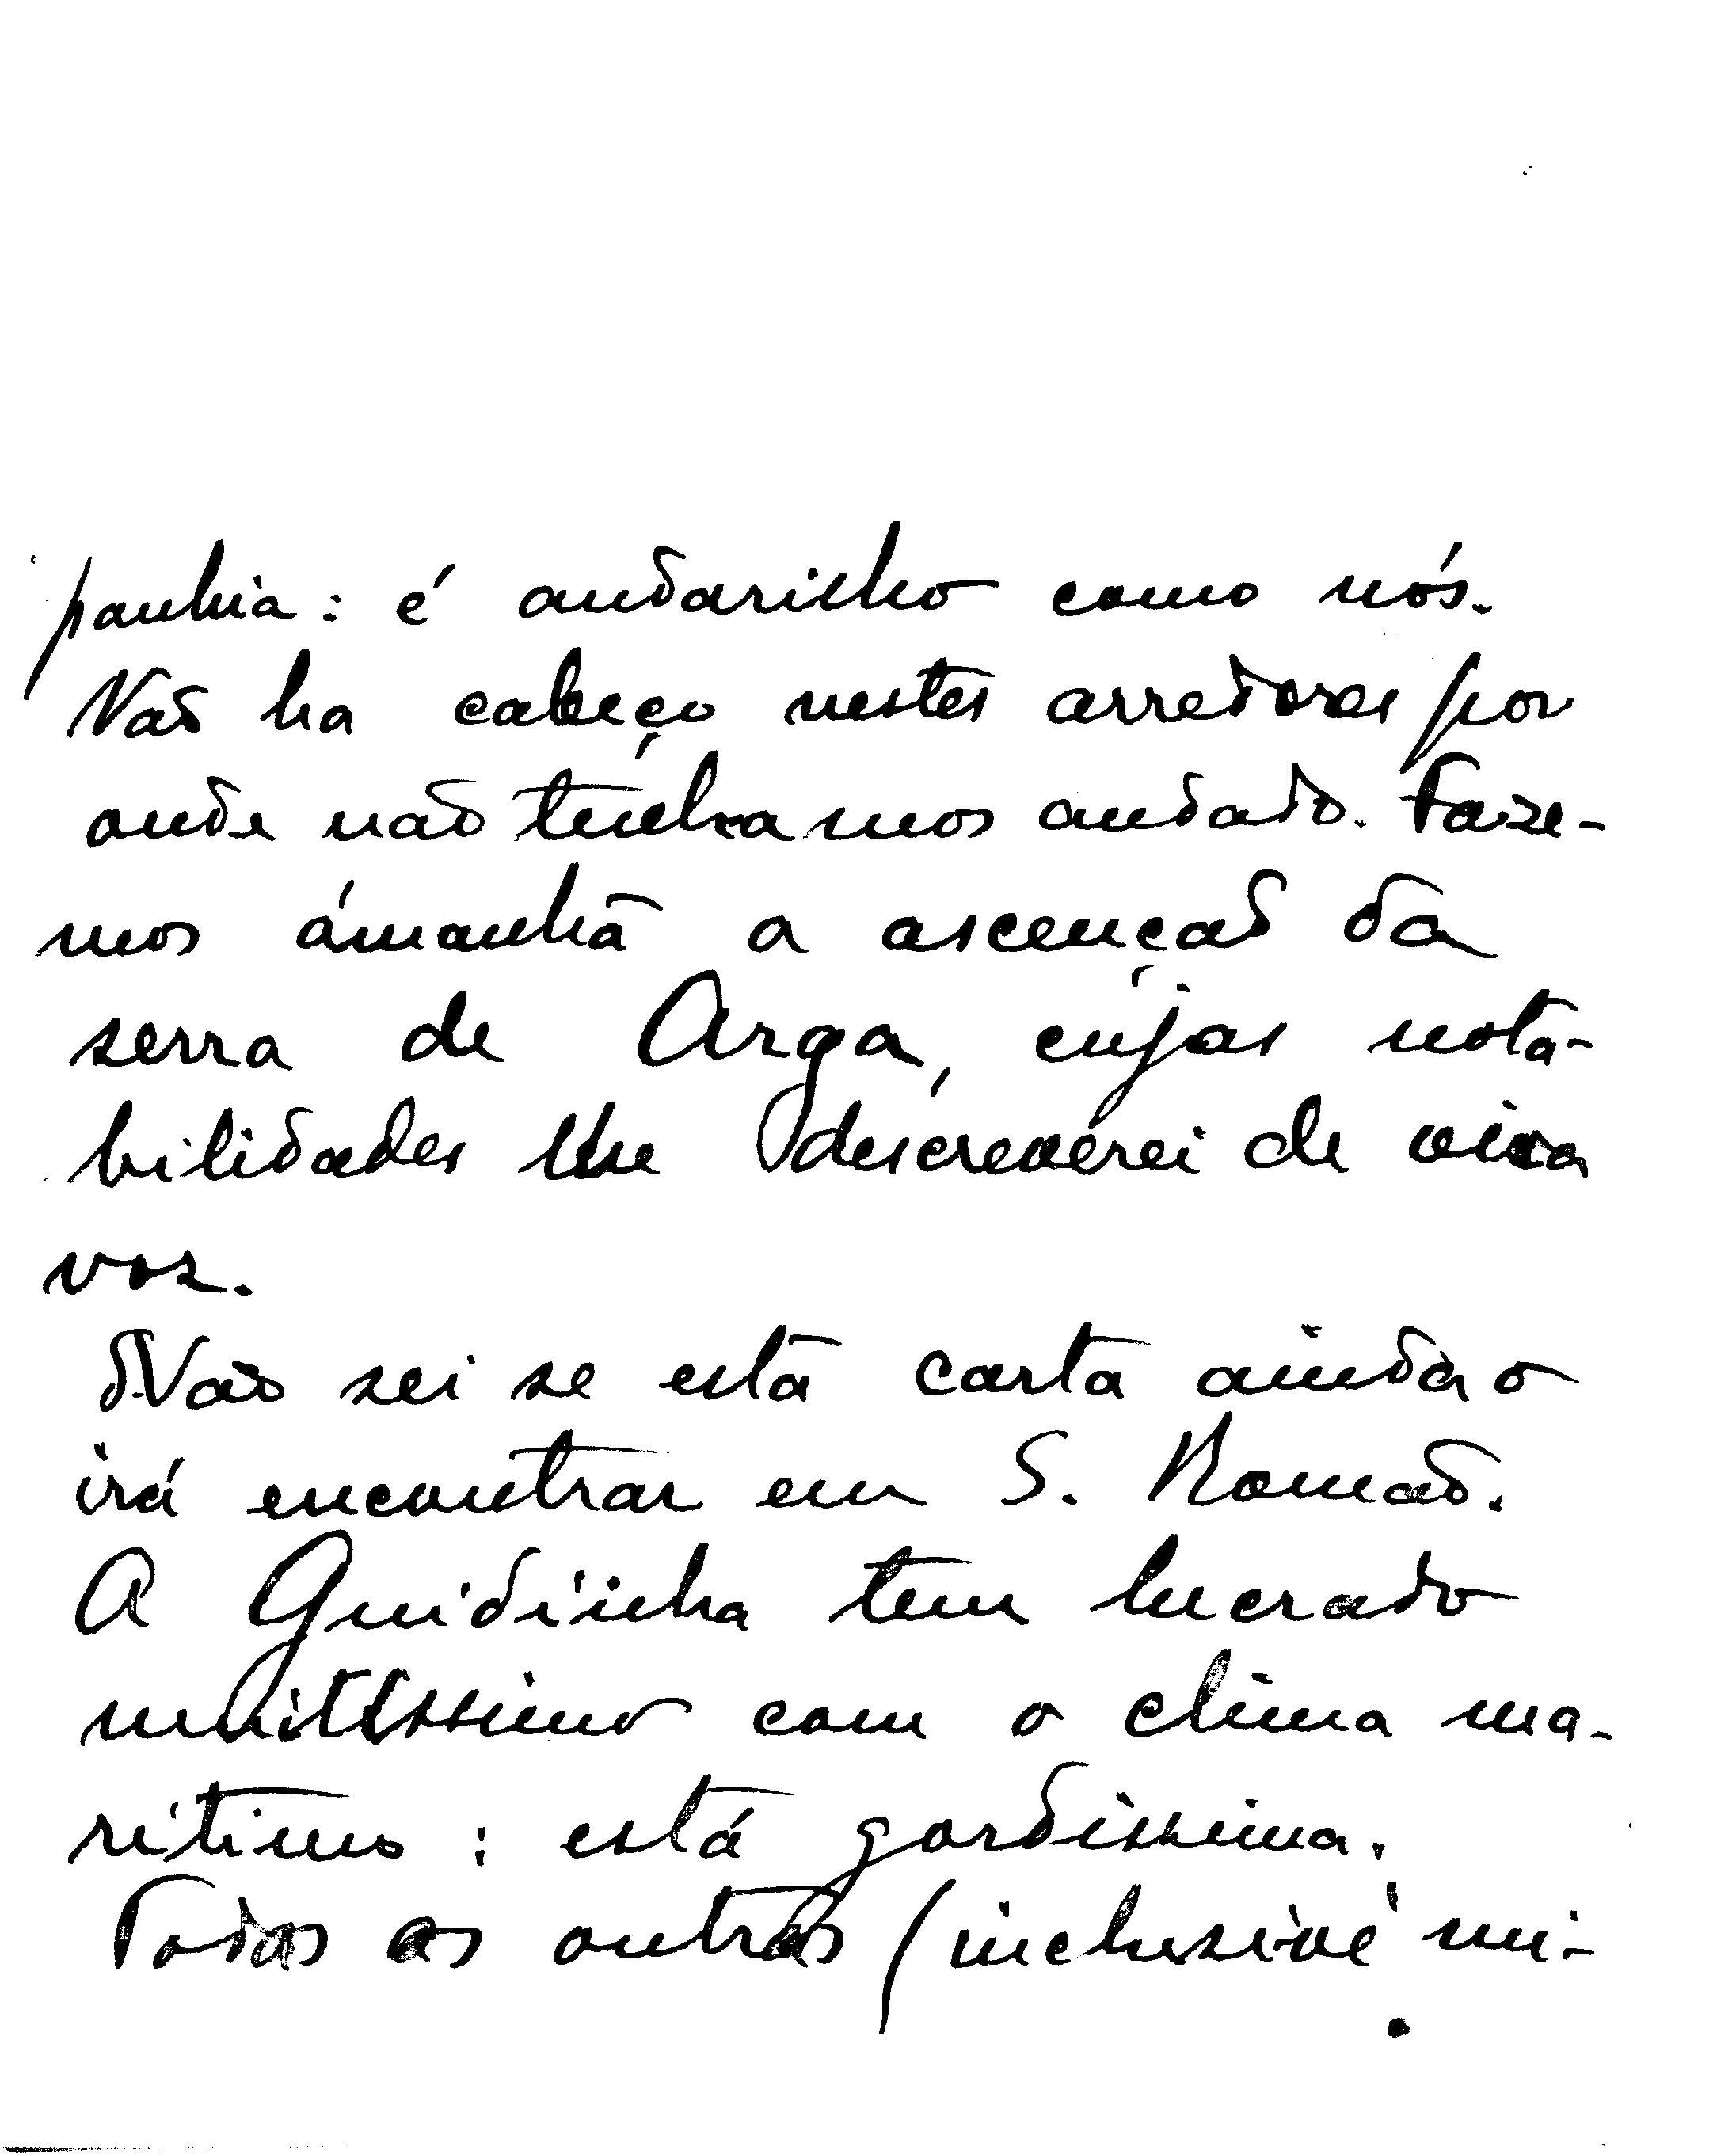 panhia: é andarilho como nós.
Não ha cabeço nestes arredores por
onde não tenhamos andado. Faze-
mos ámanhã a ascenção da
serra de Arga, cujas nota-
bilidades lhe descreverei de viva
voz.
Não sei se esta carta ainda o
irá encontrar em S. Romão.
A Guidinha tem lucrado
muitissimo com o clima ma-
ritimo: está gordissima.
Todas as outras (inclusivé mi-